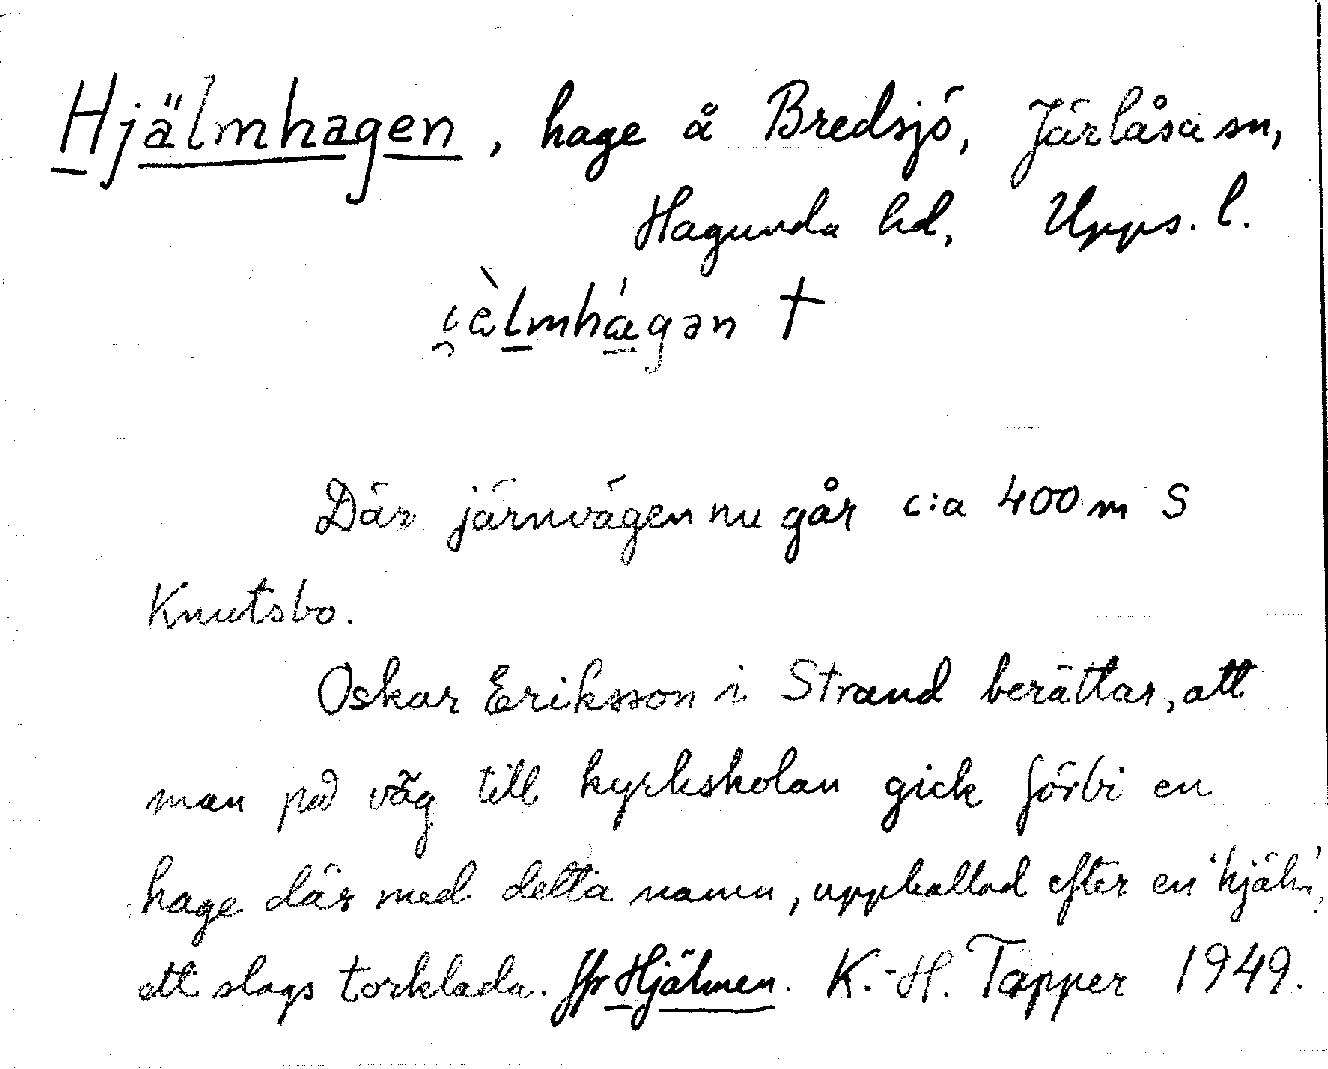 Hjälmhagen, hage å Bredsjö, Järlåsa sn,
Hagunda hd, Upps. l.
i̯èlmhágən †
Där järnvägen nu går c:a 400 m S
Knutsbo.
Oskar Eriksson i Strand berättar, att
man på väg till kyrkskolan gick förbi en
hage där med detta namn, uppkallad efter en 'hjälm',
ett slags torklada. Jfr Hjälmen. K.-H. Tapper 1949.